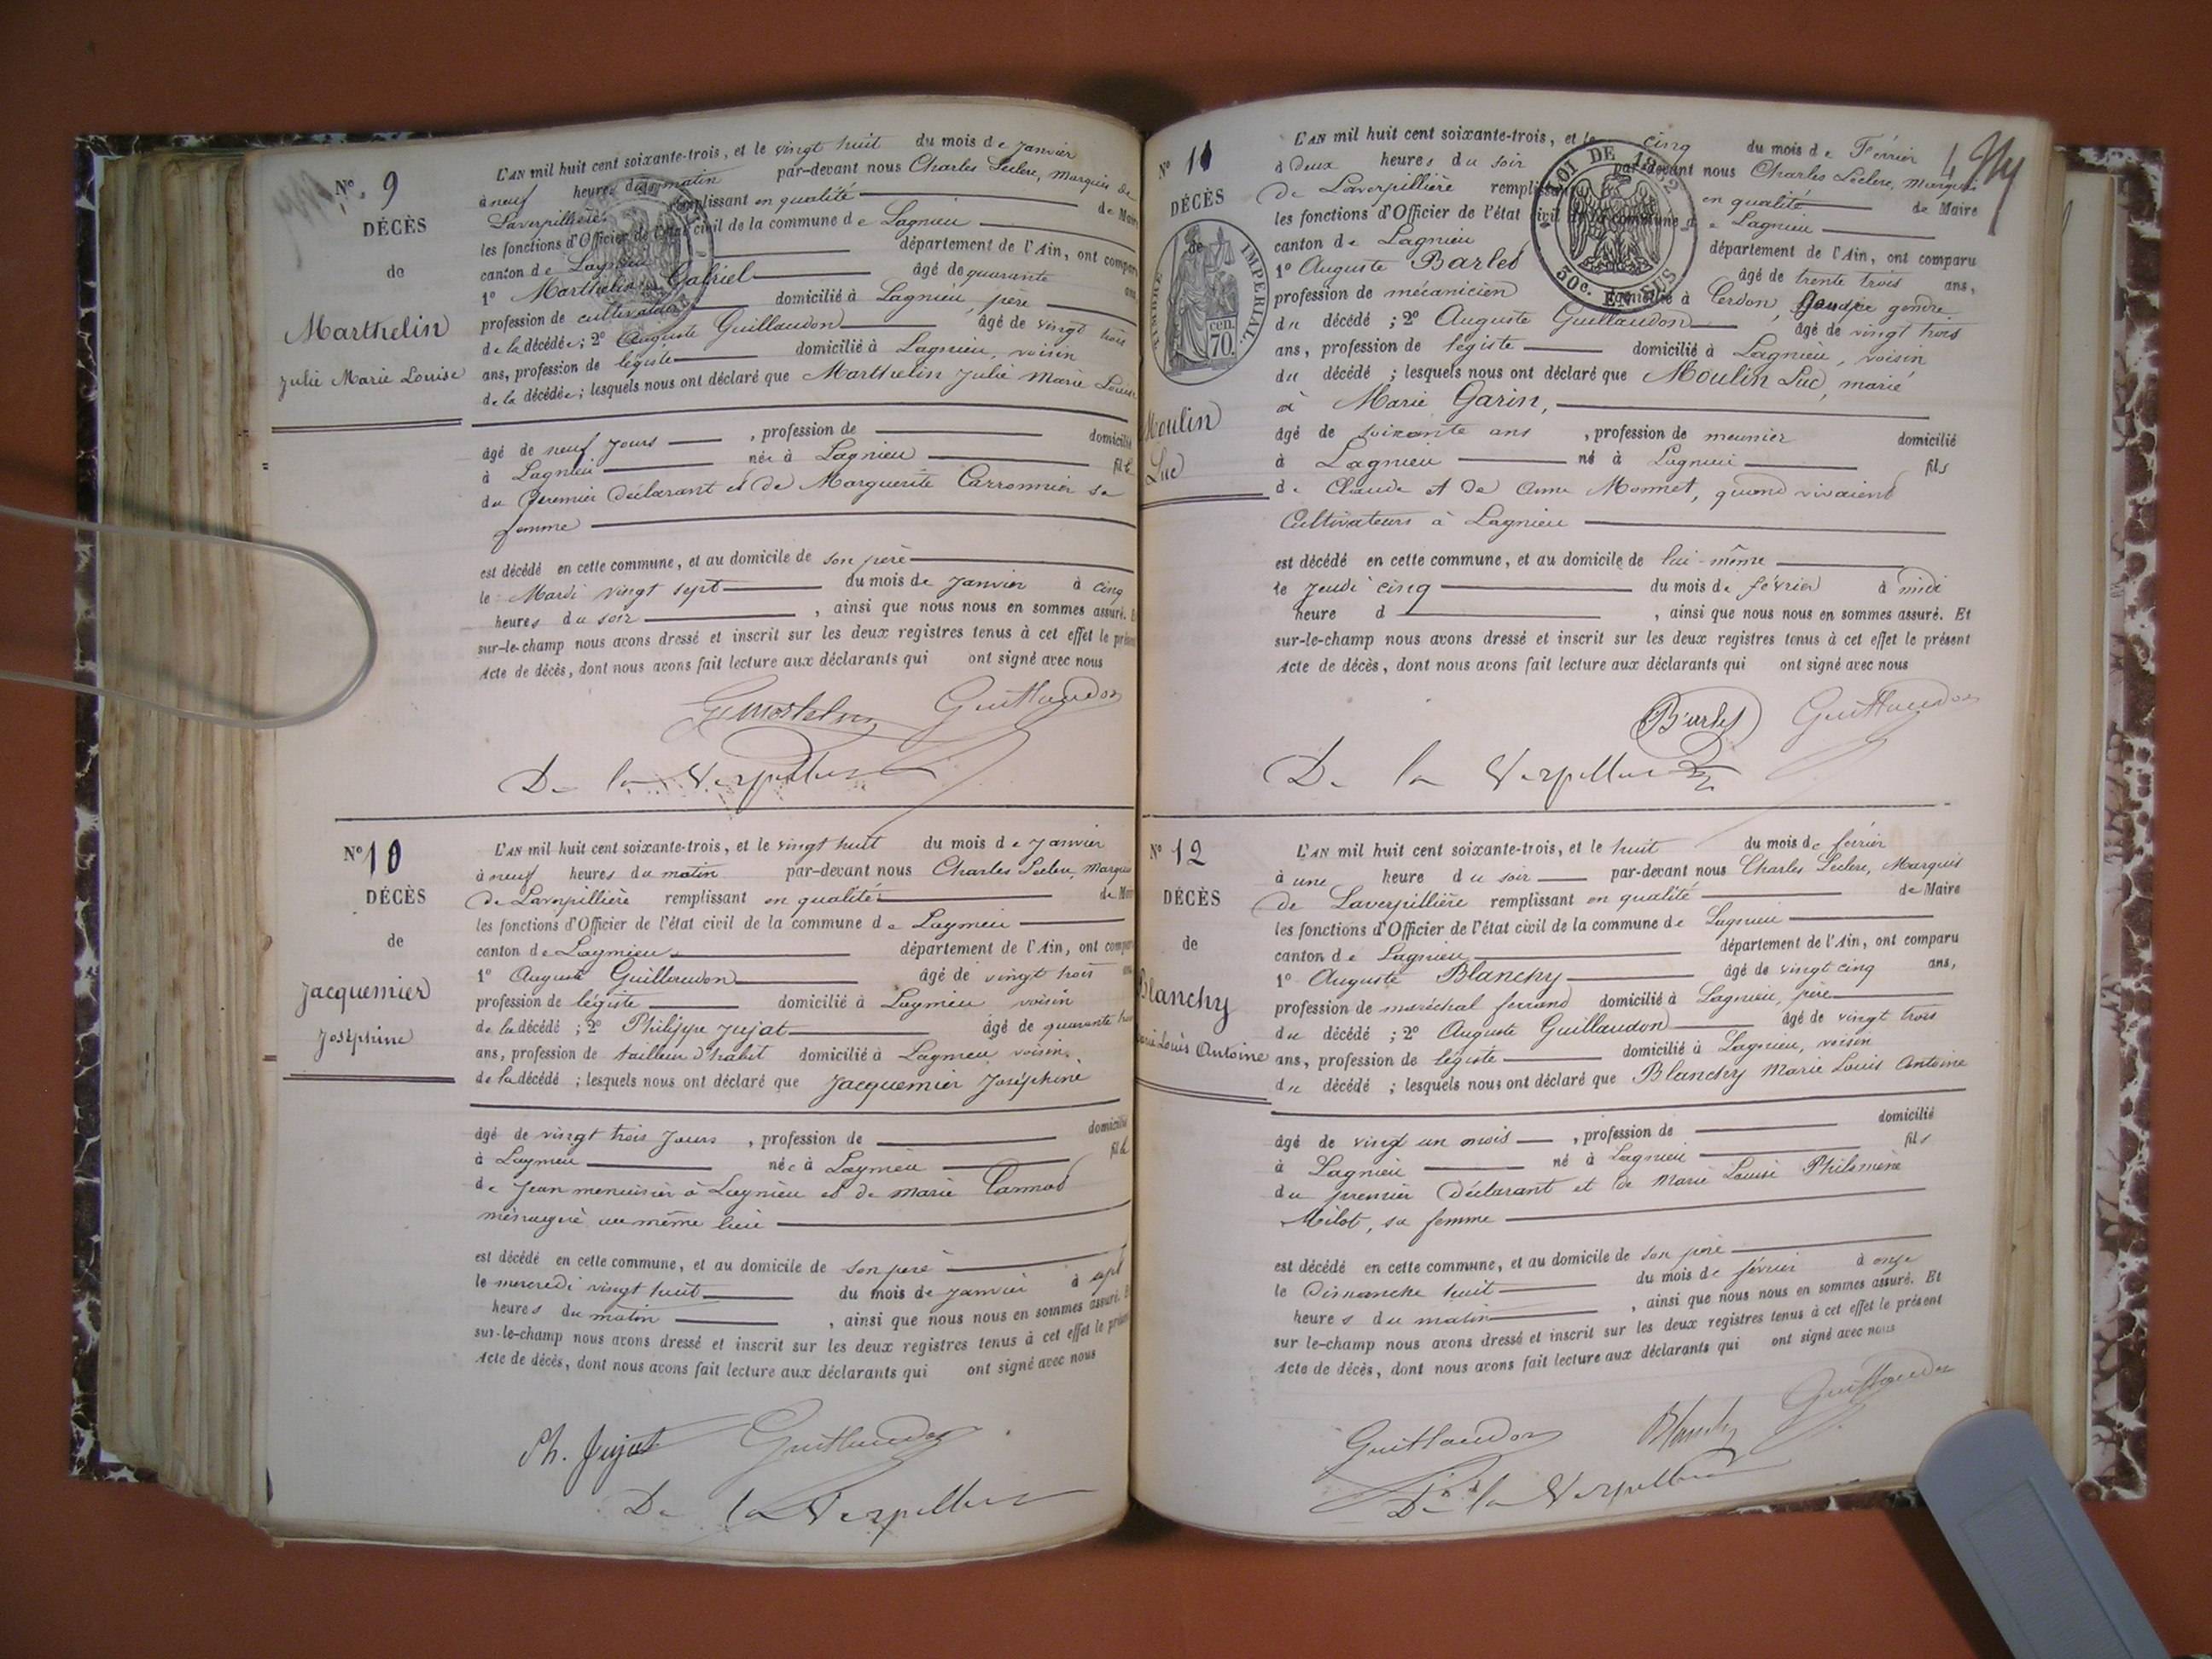 N° 9
DÉCÈS
de
Marthelin
Julie Marie Louise
L'AN mil huit cent soixante-trois, et le vingt huit du mois de Janvier
à neuf heures du matin par-devant nous Charles Leclerc, Marquis de
Laverpillière remplissant en qualité de Maire
les fonctions d'Officier de l'état civil de la commune de Lagnieu
canton de Lagnieu département de l'Ain, ont comparu
1° Marthelin Gabriel âgé de quarante ans
profession de cultivateur domicilié à Lagnieu, père
de la décédée; 2° Auguste Guillaudon âgé de vingt trois
ans, profession de légiste domicilié à Lagnieu, voisin
de la décédée; lesquels nous ont déclaré que Marthelin Julie Marie Louise
âgé de neuf jours, profession de domicilié
à Lagnieu née à Lagnieu fille
du premier déclarant et de Marguerite Carronnier sa
femme
est décédé en cette commune, et au domicile de son père
le Mardi vingt sept du mois de Janvier à cinq
heures du soir, ainsi que nous nous en sommes assuré. Et
sur-le-champ nous avons dressé et inscrit sur les deux registres tenus à cet effet le présent
Acte de décès, dont nous avons fait lecture aux déclarants qui ont signé avec nous
Guillaudon
De la Verpilliere
N° 10
DÉCÈS
de
Jacquemier
Joséphine
L'AN mil huit cent soixante-trois, et le vingt huit du mois de Janvier
à neuf heures du matin par-devant nous Charles Leclerc, Marquis
de Laverpillière remplissant en qualité de Maire
les fonctions d'Officier de l'état civil de la commune de Lagnieu
canton de Lagnieu département de l'Ain, ont comparu
1° Auguste Guillaudon âgé de vingt trois ans
profession de légiste domicilié à Lagnieu voisin
de la décédé; 2° Philippe Jujat âgé de quarante trois
ans, profession de tailleur d'habit domicilié à Lagnieu, voisin
de la décédé; lesquels nous ont déclaré que Jacquemier Joséphine
âgé de vingt trois Jours, profession de domicilié
à Lagnieu née à Lagnieu fille
de Jean menuisier à Lagnieu et de Marie
ménagère au même lieu
est décédé en cette commune, et au domicile de son père
le mercredi vingt huit du mois de Janvier à sept
heures du matin, ainsi que nous nous en sommes assuré. Et
sur-le-champ nous avons dressé et inscrit sur les deux registres tenus à cet effet le présent
Acte de décès, dont nous avons fait lecture aux déclarants qui ont signé avec nous
Ph. Jujat Guillaudon
De la Verpilliere
N° 11
DÉCÈS
de
TIMBRE IMPERIAL.
cen. 70.
Moulin
Luc
LOI DE 1862
50c. EN SUS
L'AN mil huit cent soixante-trois, et le cinq du mois de Février
à deux heures du soir par-devant nous Charles Leclerc, Marquis
de Laverpillière remplissant en qualité de Maire
les fonctions d'Officier de l'état civil de la commune de Lagnieu
canton de Lagnieu département de l'Ain, ont comparu
1° Auguste Barlet âgé de trente trois ans,
profession de mécanicien domicilié à Cerdon, gendre
du décédé; 2° Auguste Guillaudon âgé de vingt trois
ans, profession de légiste domicilié à Lagnieu, voisin
du décédé; lesquels nous ont déclaré que Moulin Luc, marié
à Marie Garin,
âgé de soixante ans, profession de meunier domicilié
à Lagnieu né à Lagnieu fils
de Claude et de Anne Monnet, quand vivaient
Cultivateurs à Lagnieu
est décédé en cette commune, et au domicile de lui-même
le Jeudi cinq du mois de février à midi
heure d, ainsi que nous nous en sommes assuré. Et
sur-le-champ nous avons dressé et inscrit sur les deux registres tenus à cet effet le présent
Acte de décès, dont nous avons fait lecture aux déclarants qui ont signé avec nous
Barlet Guillaudon
De la Verpilliere
N° 12
DÉCÈS
de
Blanchy
Marie Louis Antoine
L'AN mil huit cent soixante-trois, et le huit du mois de février
à une heure du soir par-devant nous Charles Leclerc, Marquis
de Laverpillière remplissant en qualité de Maire
les fonctions d'Officier de l'état civil de la commune de Lagnieu
canton de Lagnieu département de l'Ain, ont comparu
1° Auguste Blanchy âgé de vingt cinq ans,
profession de maréchal ferrand domicilié à Lagnieu, père
du décédé; 2° Auguste Guillaudon âgé de vingt trois
ans, profession de légiste domicilié à Lagnieu, voisin
du décédé; lesquels nous ont déclaré que Blanchy Marie Louis Antoine
âgé de vingt un mois, profession de domicilié
à Lagnieu né à Lagnieu fils
du premier déclarant et de Marie Louise Philomène
Milot, sa femme
est décédé en cette commune, et au domicile de son père
le Dimanche huit du mois de février à onze
heures du matin, ainsi que nous nous en sommes assuré. Et
sur le-champ nous avons dressé et inscrit sur les deux registres tenus à cet effet le présent
Acte de décès, dont nous avons fait lecture aux déclarants qui ont signé avec nous
Guillaudon Blanchy Guillaudon
De la Verpilliere